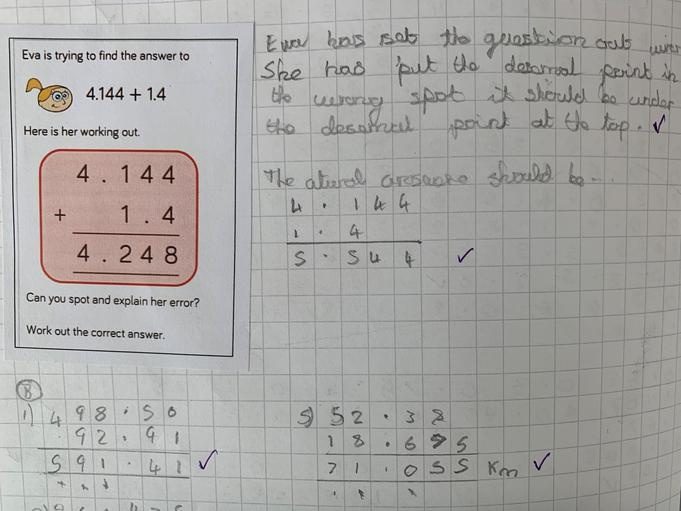 Eva is trying to find the answer to
4.144 + 1.4
Here is her working out.
4 . 1 4 4
+ 1 . 4
4 . 2 4 8
Can you spot and explain her error?
Work out the correct answer.
Eva has set the question out
She has put the desomal point in
the wrong spot it should be under
the desomal point at the top. ✓
The should be...
4 . 1 4 4
1 . 4
5 . 5 4 4 ✓
8
1) 4 9 8 . 5 0
9 2 . 9 1
5 9 1 . 4 1 ✓
5) 5 2 . 3 8
1 8 . 6 7 5
7 1 . 0 5 5 Km ✓